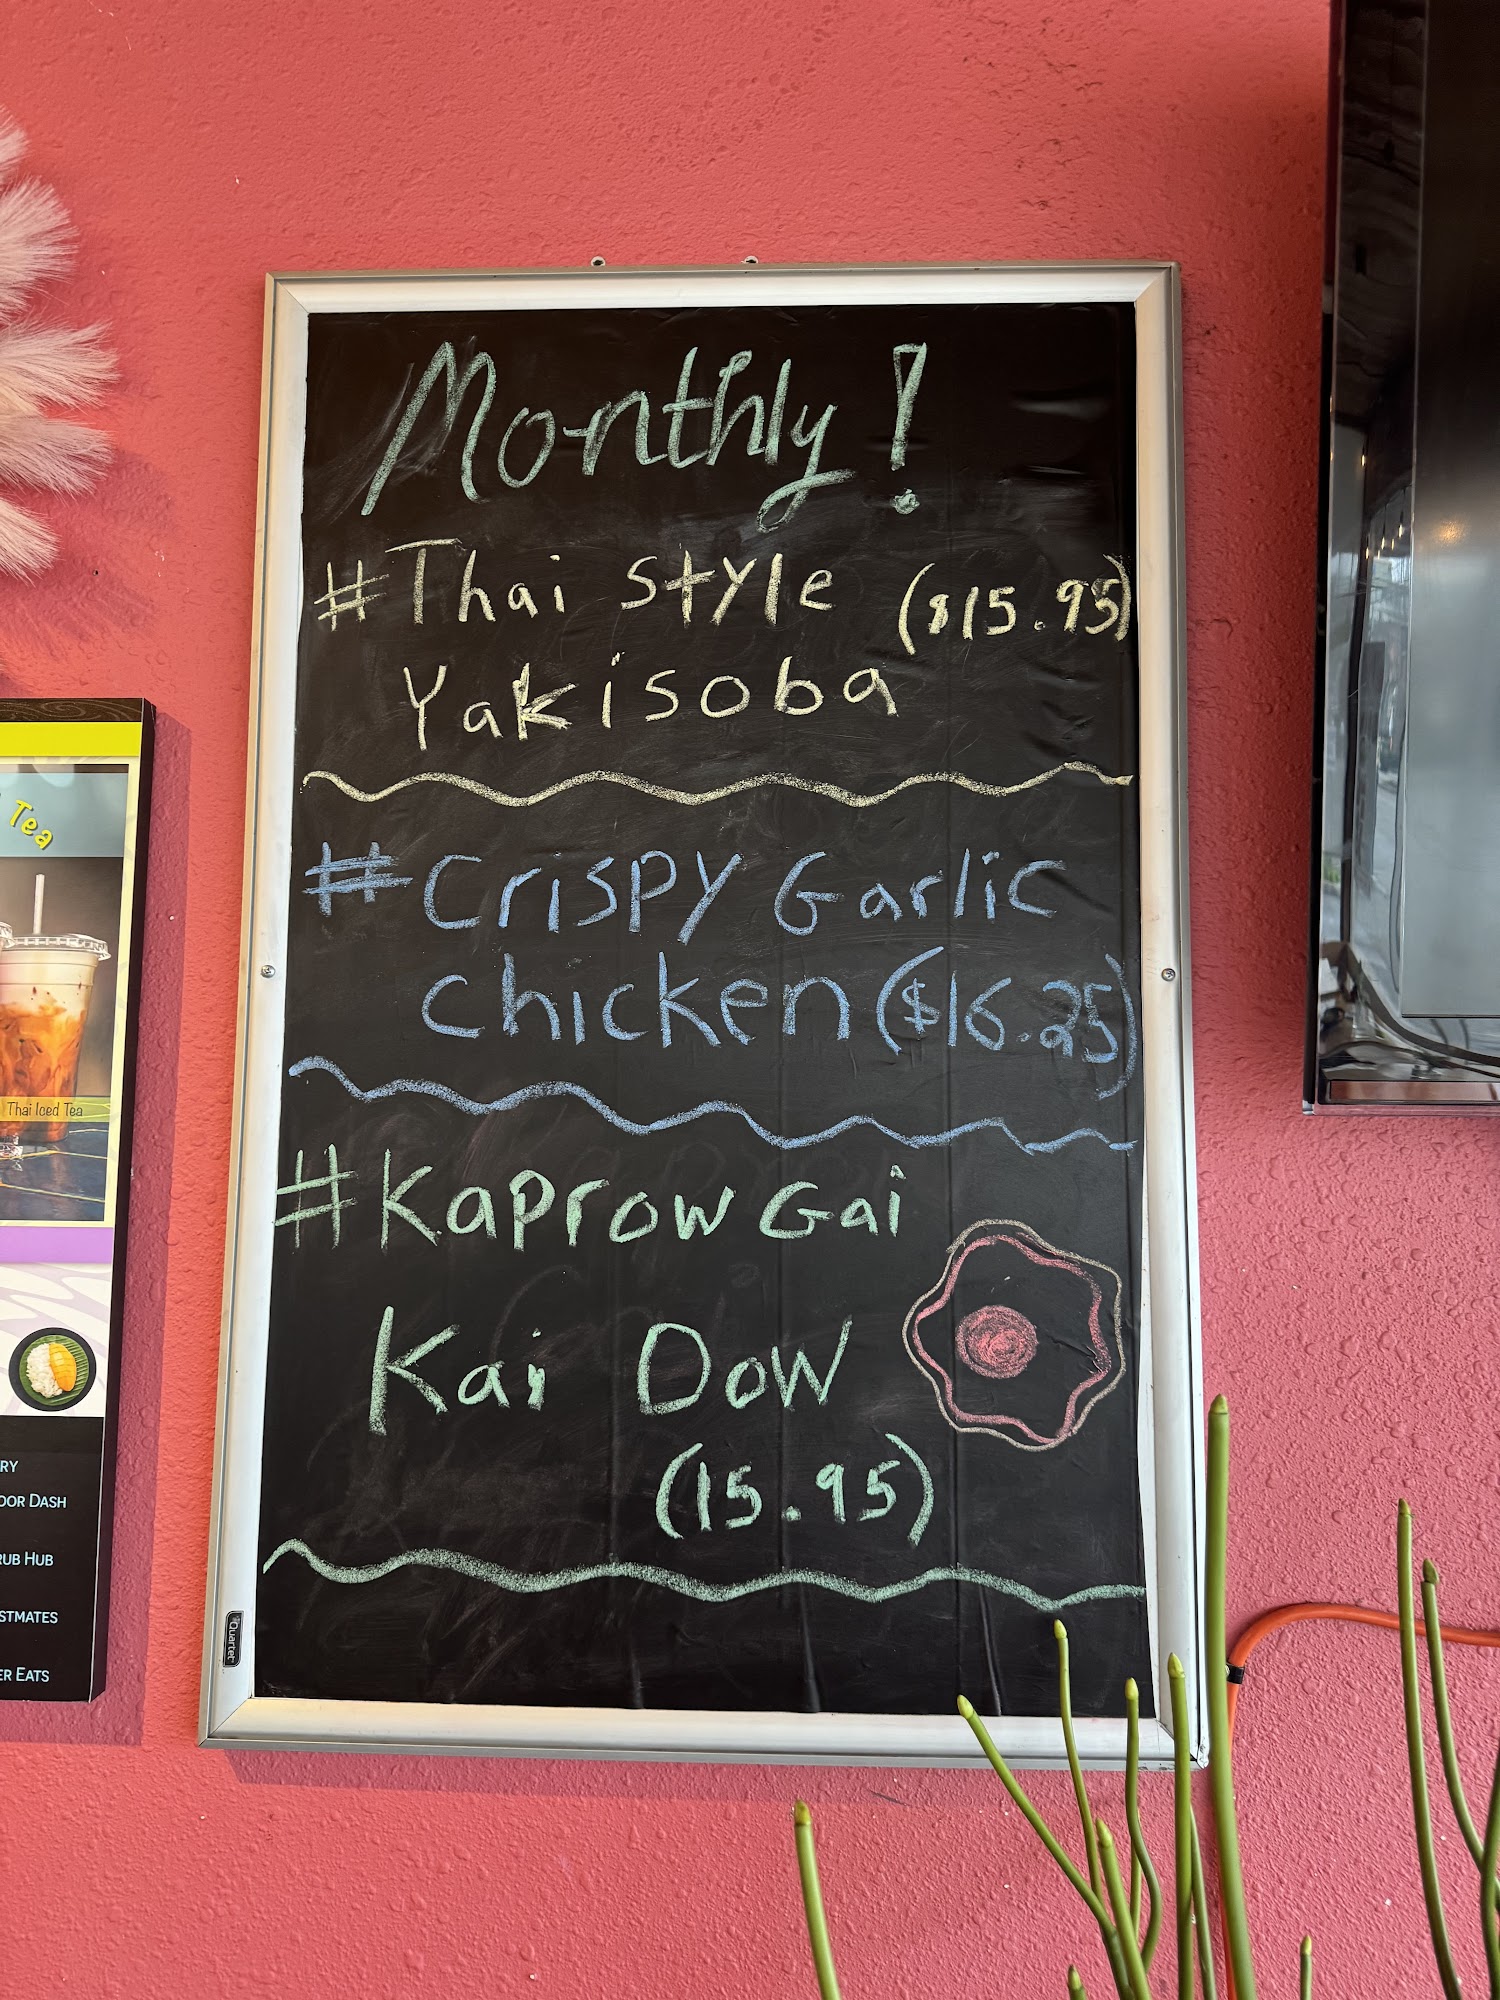 Monthly!
#Thai Style ($15.95)
Yakisoba
#Crispy Garlic
Chicken ($16.25)
#Kaprow Gai
Kai Dow
(15.95)
Quartet
Tea
Thai Iced Tea
RY
OOR DASH
RUB HUB
STMATES
ER EATS